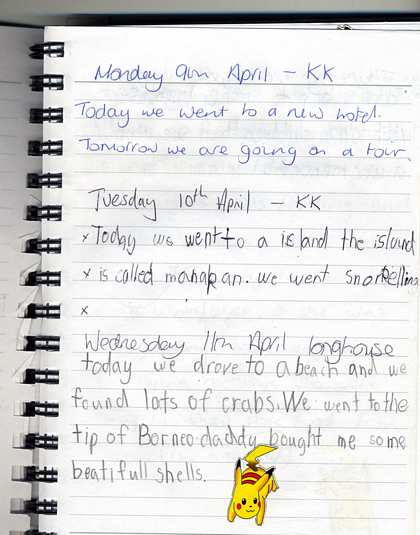 Monday 9th April - KK
Today we went to a new hotel.
Tomorrow we are going on a tour.
Tuesday 10th April - KK
x Today we went to a island the island
x is called manapan. we went snorkelling
x
Wednesday 11th April longhouse
today we drove to a beach and we
found lots of crabs. We went to the
tip of Borneo daddy bought me some
beatifull shells.